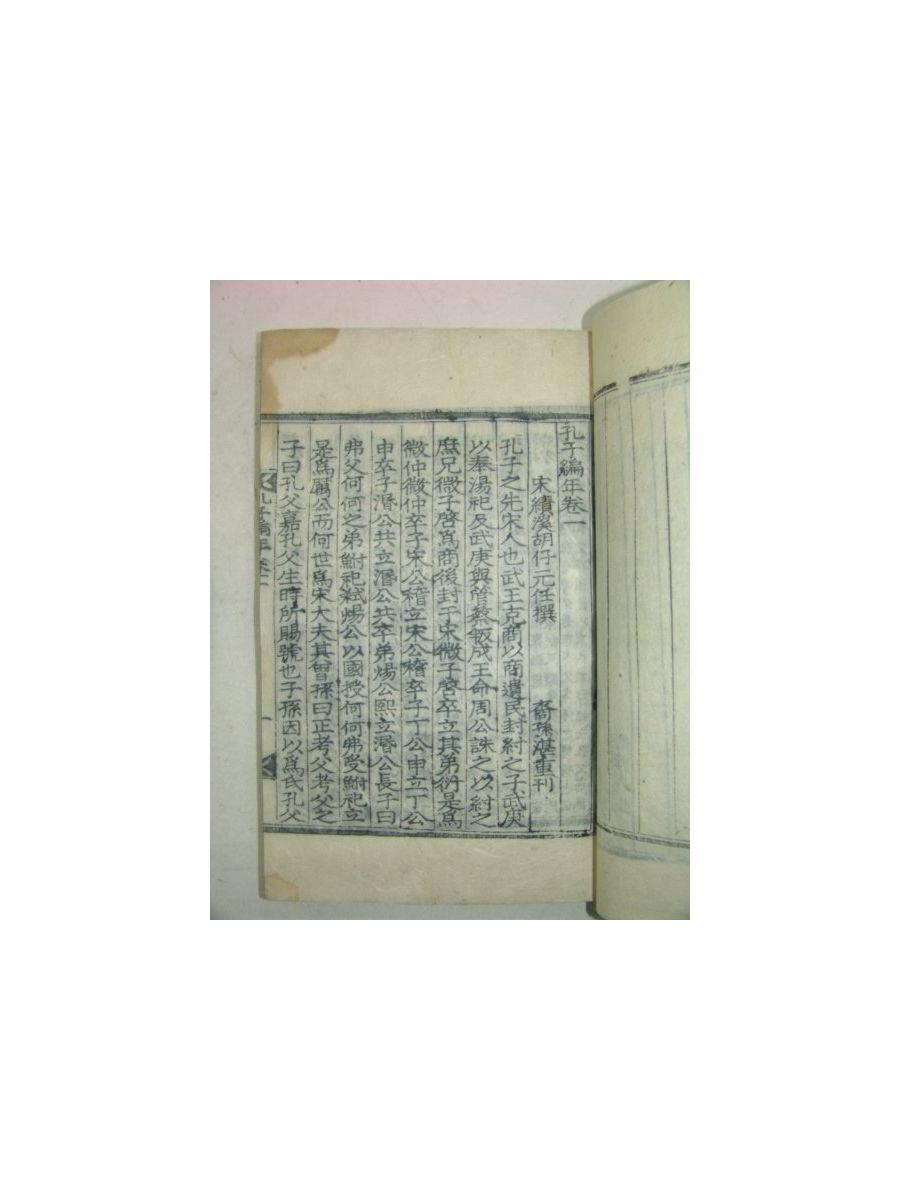 孔子編年卷一
宋績溪胡仔元任撰　裔孫湛重刊
孔子之先宋人也武王克商以商遺民封紂之子武庚
以奉湯祀及武庚與管蔡叛成王命周公誅之以紂之
庶兄微子啓爲商後封于宋微子啓卒立其弟衍是爲
微仲微仲卒子宋公稽立宋公稽卒子丁公申立丁公
申卒子湣公共立湣公共卒弟煬公熙立湣公長子曰
弗父何何之弟鮒祀弒煬公以國授何何弗受鮒祀立
是爲厲公而何世爲宋大夫其曾孫曰正考父考父之
子曰孔父嘉孔父生時所賜號也子孫因以爲氏孔父
孔子編年 卷一 一